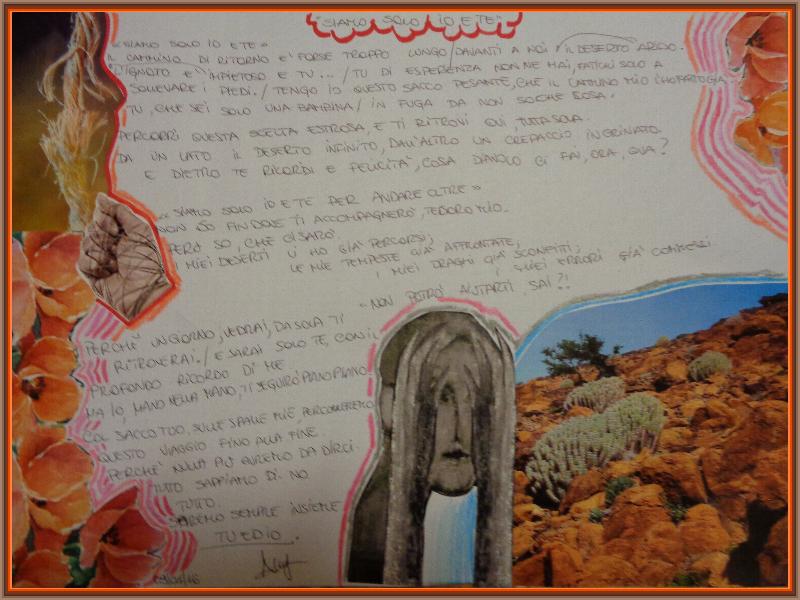 "SIAMO SOLO IO E TE"
"SIAMO SOLO IO E TE"
IL CAMMINO DI RITORNO E' FORSE TROPPO LUNGO/DAVANTI A NOI/IL DESERTO ARIDO.
L'IGNOTO E' IMPIETOSO E TU.../TU DI ESPERIENZA NON NE HAI, FATICHI SOLO A
SOLLEVARE I PIEDI./TENGO IO QUESTO SACCO PESANTE, CHE IL CAMMINO MIO L'HO FATTO GIA'
TU, CHE SEI SOLO UNA BAMBINA/IN FUGA DA NON SO CHE COSA.
PERCORRI QUESTA SCELTA ESTROSA, E TI RITROVI QUI, TUTTA SOLA.
DA UN LATO IL DESERTO INFINITO, DALL'ALTRO UN CREPACCIO INCRINATO
E DIETRO TE RICORDI E FELICITA', COSA DIAVOLO CI FAI, ORA, QUA?
"SIAMO SOLO IO E TE PER ANDARE OLTRE"
NON SO FIN DOVE TI ACCOMPAGNERO', TESORO MIO.
PERO' SO, CHE CI SARO'.
I MIEI DESERTI LI HO GIA' PERCORSI;
LE MIE TEMPESTE GIA' AFFRONTATE,
I MIEI DRAGHI GIA' SCONFITTI;
I MIEI ERRORI GIA' COMMESSI.
"NON POTRO' AIUTARTI, SAI?!
PERCHE' UN GIORNO, VEDRAI, DA SOLA TI
RITROVERAI./E SARAI SOLO TE, CON IL
PROFONDO RICORDO DI ME.
MA IO, MANO NELLA MANO, TI SEGUIRO' PIANO PIANO
COL SACCO TUO, SULLE SPALLE MIE, PERCORREREMO
QUESTO VIAGGIO FINO ALLA FINE.
PERCHE' NULLA PIU' AVREMO DA DIRCI.
TUTTO SAPPIAMO DI NOI
TUTTO.
SAREMO SEMPRE INSIEME
TU ED IO.